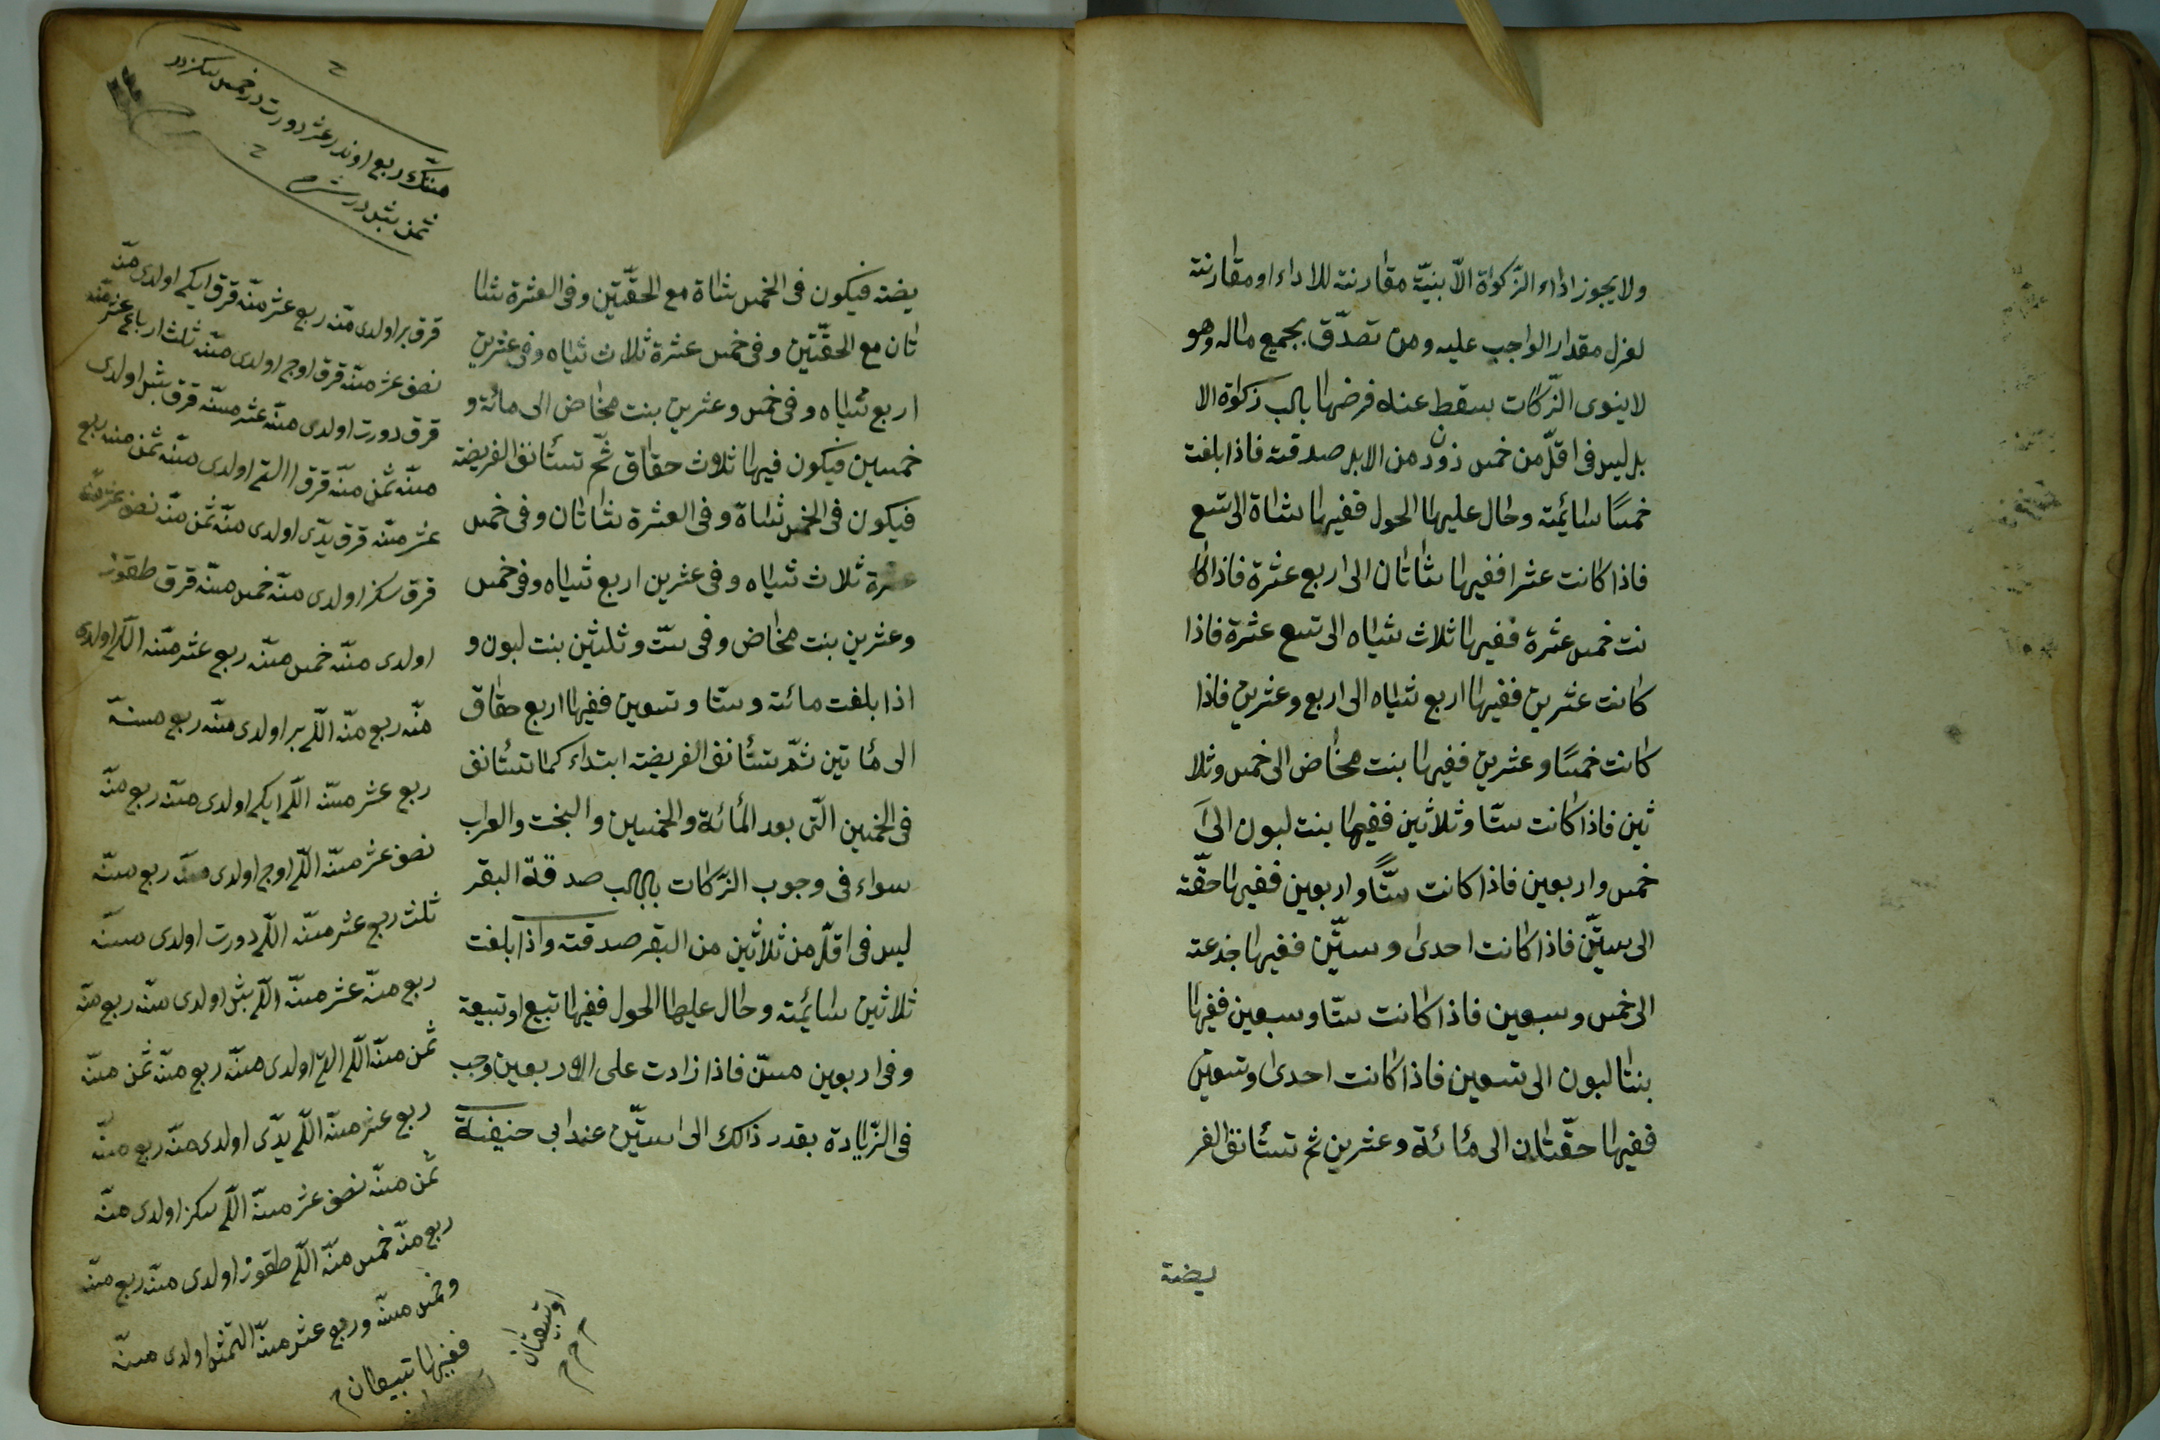 ولا يجوز اداء الزّكوٰة الاّ بنيّة مقارنة للاداء او مقارنة
لعزل مقدار الواجب عليه ومن تصدّق بجميع ماله وهو
لا ينوى الزّكات سقط عنه فرضها باب زكوٰة الا
بل ليس فى اقلّ من خمس ذود من الابل صدقة فاذا بلغت
خمسًا سائمة وحال عليها الحول ففيها شاة الى تسع
فاذا كانت عشرا ففيها شاتان الى اربع عشرة فاذا كا
نت خمس عشرة ففيها ثلاث شياه الى تسع عشرة فاذا
كانت عشرين ففيها اربع شياه الى اربع وعشرين فاذا
كانت خمسًا وعشرين ففيها بنت مخاض الى خمس وثلا
ثين فاذا كانت ستّا وثلاثين ففيها بنت لبون الى
خمس واربعين فاذا كانت ستًّا واربعين ففيها حقّة
الى ستّين فاذا كانت احدى وستّين ففيها جذعة
الى خمس وسبعين فاذا كانت ستّا وسبعين ففيها
بنتا لبون الى تسعين فاذا كانت احدى وتسعين
ففيها حقّتان الى مائة وعشرين ثم تستأنف الفر
يضة
يضة فيكون فى الخمس شاة مع الحقّتين وفى العشرة شا
تان مع الحقّتين وفى خمس عشرة ثلاث شياه وفى عشرين
اربع شياه وفى خمس وعشرين بنت مخاض الى مائة و
خمسين فيكون فيها ثلوث حقاق ثمّ تستأنف الفريضة
فيكون فى الخمس شاة وفى العشرة شاتان وفى خمس
عشرة ثلاث شياه وفى عشرين اربع شياه وفى خمس
وعشرين بنت مخاض وفى ستّ وثلثين بنت لبون و
اذا بلغت مائة وستا وتسعين ففيها اربع حقاق
الى مأتين ثمّ تستأنف الفريضة ابتداء كما تستأنف
فى الخمسين الّتى بعد المأئة والخمسين والبخت والعراب
سواء فى وجوب الزّكات باب صدقة البقر
ليس فى اقلّ من ثلاثين من البقر صدقة واذا بلغت
ثلاثين سائمة وحال عليها الحول ففيها تبيع او تبيعة
وفى اربعين مسنّ فاذا زادت على الاربعين وجب
فى الزّيادة بقدر ذالك الى ستّين عند ابى حنيفة
منّنك ربع اوندر عشر دورت در خمس سكزدر
ثمن بش در شرح
قرق بر اولدى منّه ربع عشر منّه قرق ايكى اولدى منّه
نصف عشر منّه قرق اوچ اولدى منّه ثلث ارباع عشر منّه
قرق دورت اولدى منّه عشر مسنّه قرق بش اولدى
منّه ثمن منّه قرق التى اولدى منّه ثمن منّه ربع
عشر منّه قرق يدّى اولدى منّه ثمن منّه نصف عشر منّه
قرق سكز اولدى منّه خمس منّه قرق طقوز
اولدى منّه خمس منّه ربع عشر منّه اللّى اولدى
منّه ربع منّه اللّى بر اولدى منّه ربع مسنّه
ربع عشر منّه اللّى ايكى اولدى منّه ربع منّه
نصف عشر منّه اللّى اوچ اولدى منّه ربع منّه
ثلث ربع عشر منّه اللّى دورت اولدى مسنّه
ربع منّه عشر منّه اللّى بش اولدى منّه ربع منّه
ثمن منّه اللّى التى اولدى منّه ربع منّه ثمن منّه
ربع عشر منّه اللّى يدّى اولدى منّه ربع منّه
ثمن منّه نصف عشر منّه اللّى سكز اولدى منّه
ربع منّه خمس منّه اللّى طقوز اولدى منّه ربع منّه
وخمس منّه وربع عشر منّه التمش اولدى منّه
ففيها تبيعان م
او تبيعتان